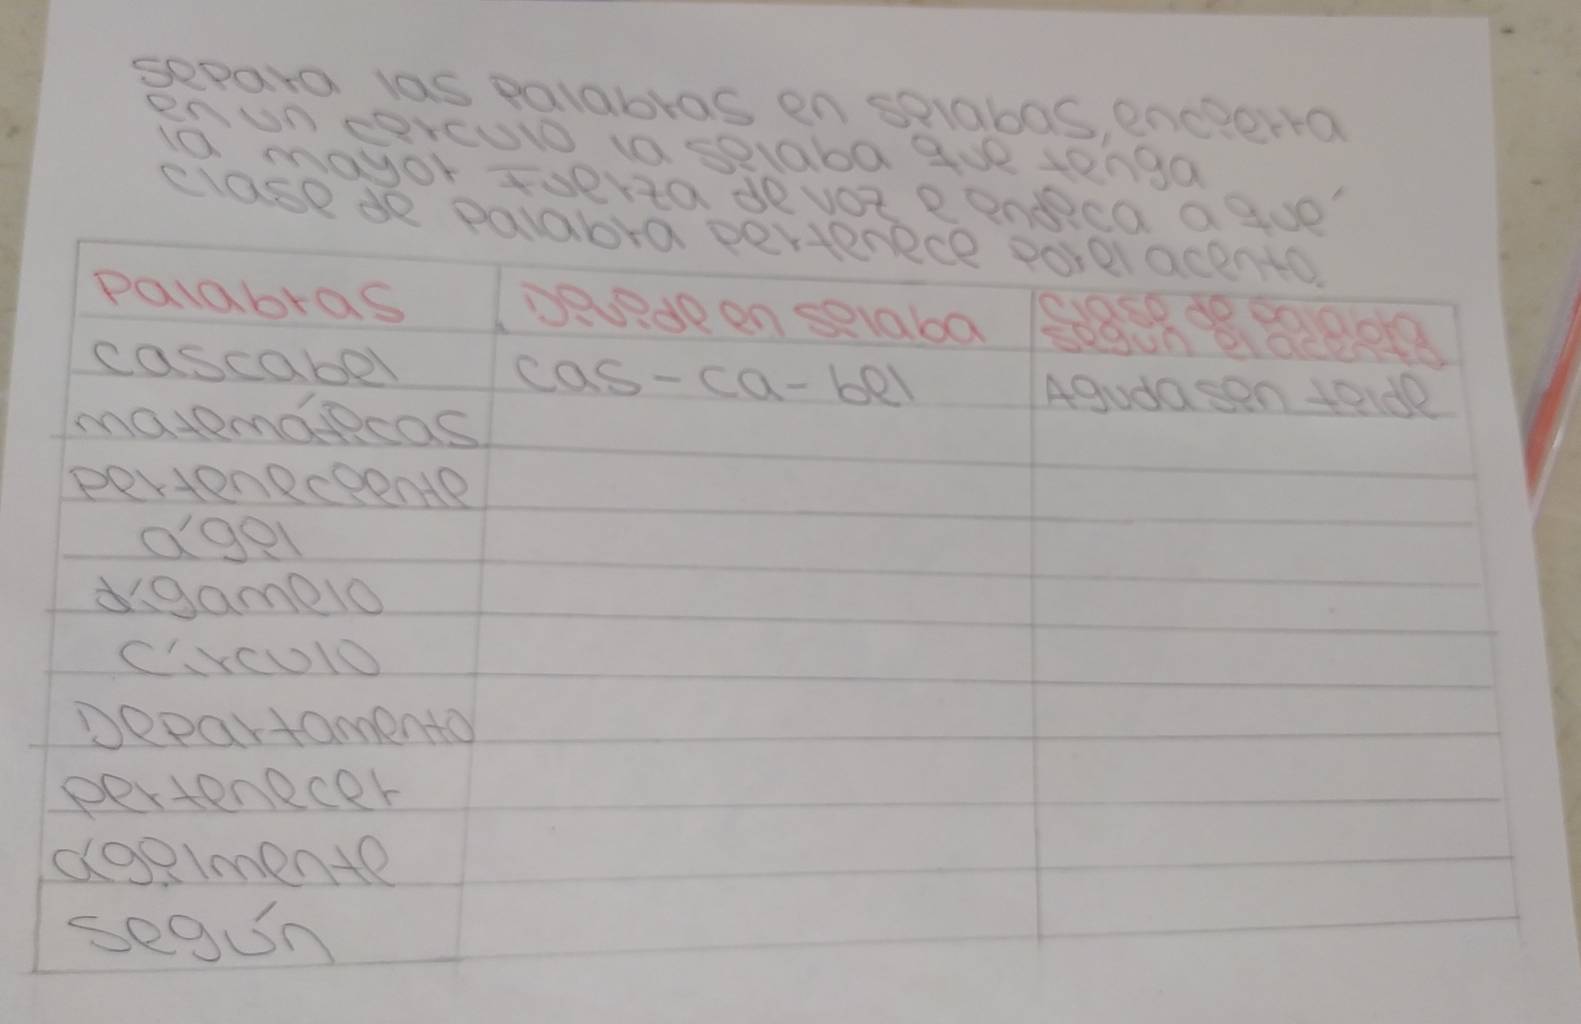 separa las palabras en selabas, enceerra
en un cerculo la selaba que tenga
la mayor fuerza de voz e endeca a qué
clase de palabra pertenece por el acento.
Palabras Devede en selaba clase de palabra
según el acento
cascabel cas-ca-bel Agudasen telde
matemátecas
perteneceente
ágel
dígamelo
círculo
Departamento
pertenecer
ágelmente
según